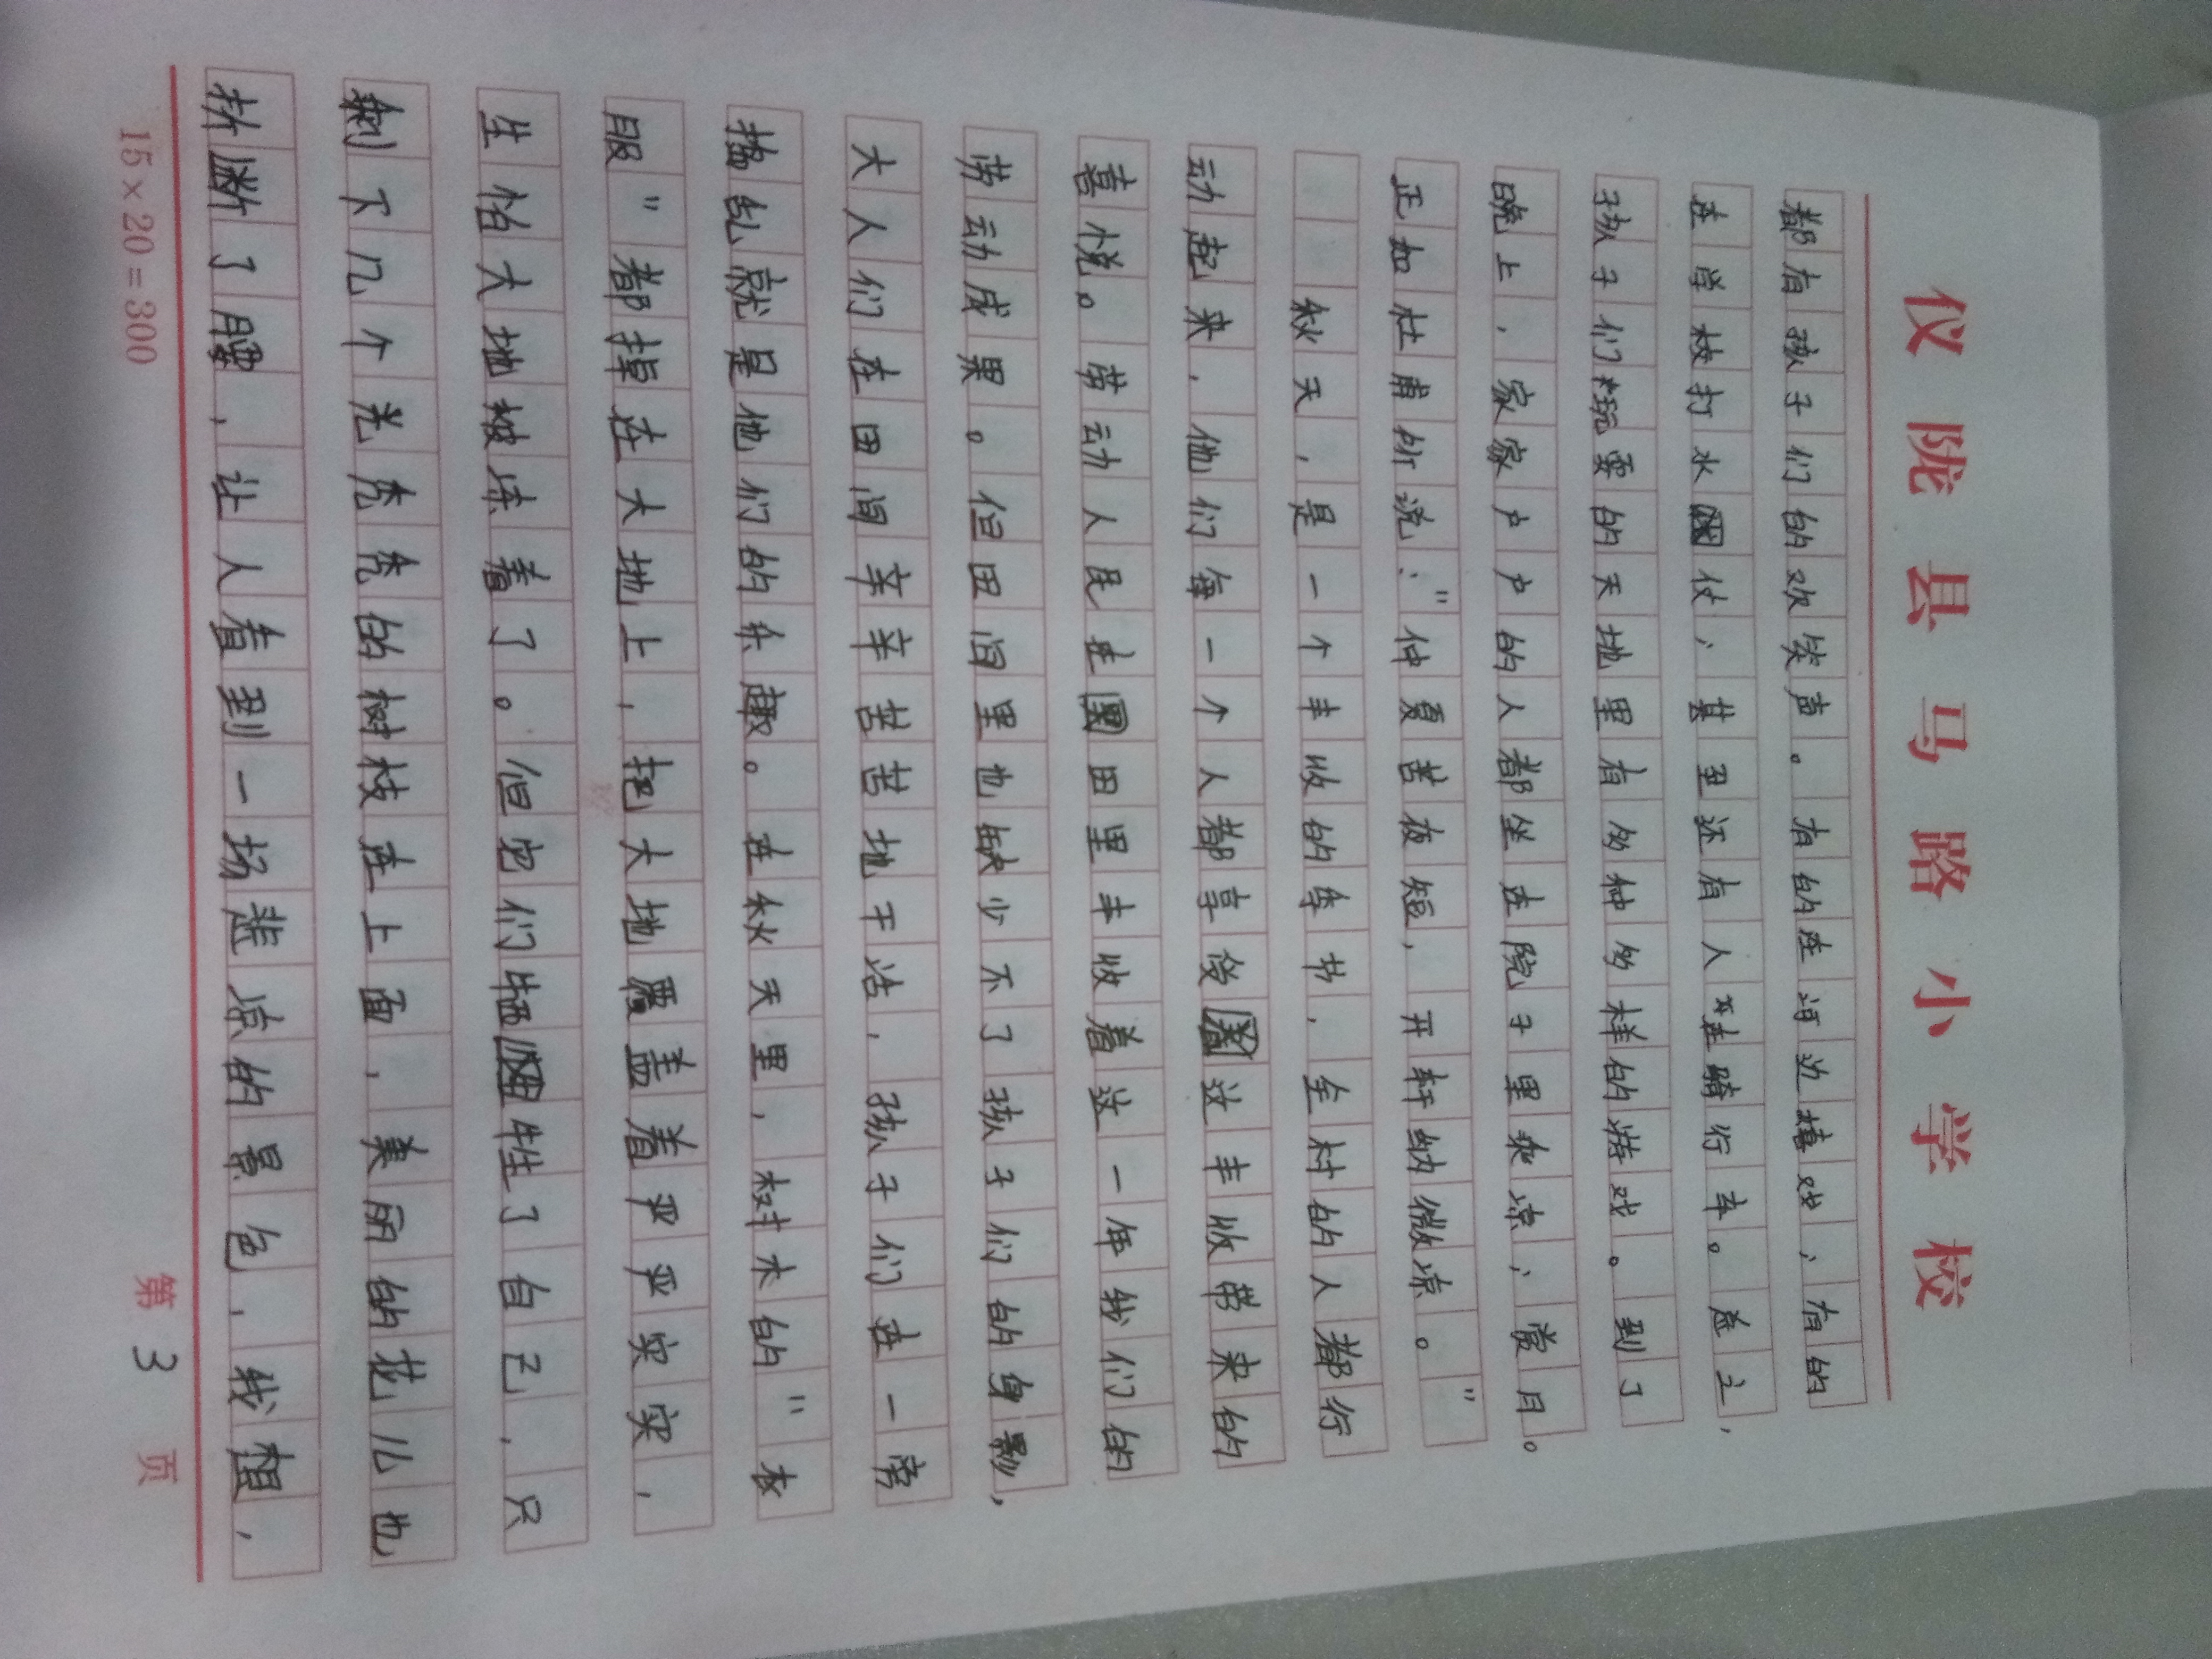 仪陇县马路小学校
都有孩子们的欢笑声。有的在河边嬉戏,有的
在学校打水仗,甚至还有人在骑行车。总之,
孩子们玩耍的天地里有多种多样的游戏。到了
晚上,家家户户的人都坐在院子里乘凉,赏月。
正如杜甫所说:"仲夏苦夜短,开轩纳微凉。"
秋天,是一个丰收的季节,全村的人都行
动起来,他们每一个人都享受这丰收带来的
喜悦。劳动人民在田里丰收着这一年我们的
劳动成果。但田间里也缺少不了孩子们的身影,
大人们在田间辛辛苦苦地干活,孩子们在一旁
捣乱就是他们的乐趣。在秋天里,树木的"衣
服"都掉在大地上,把大地覆盖着严严实实,
生怕大地被冻着了。但它们牺牲了自己,只
剩下几个光秃秃的树枝在上面,美丽的花儿也
折断了腰,让人看到一场悲凉的景色,我想,
15×20=300
第3页